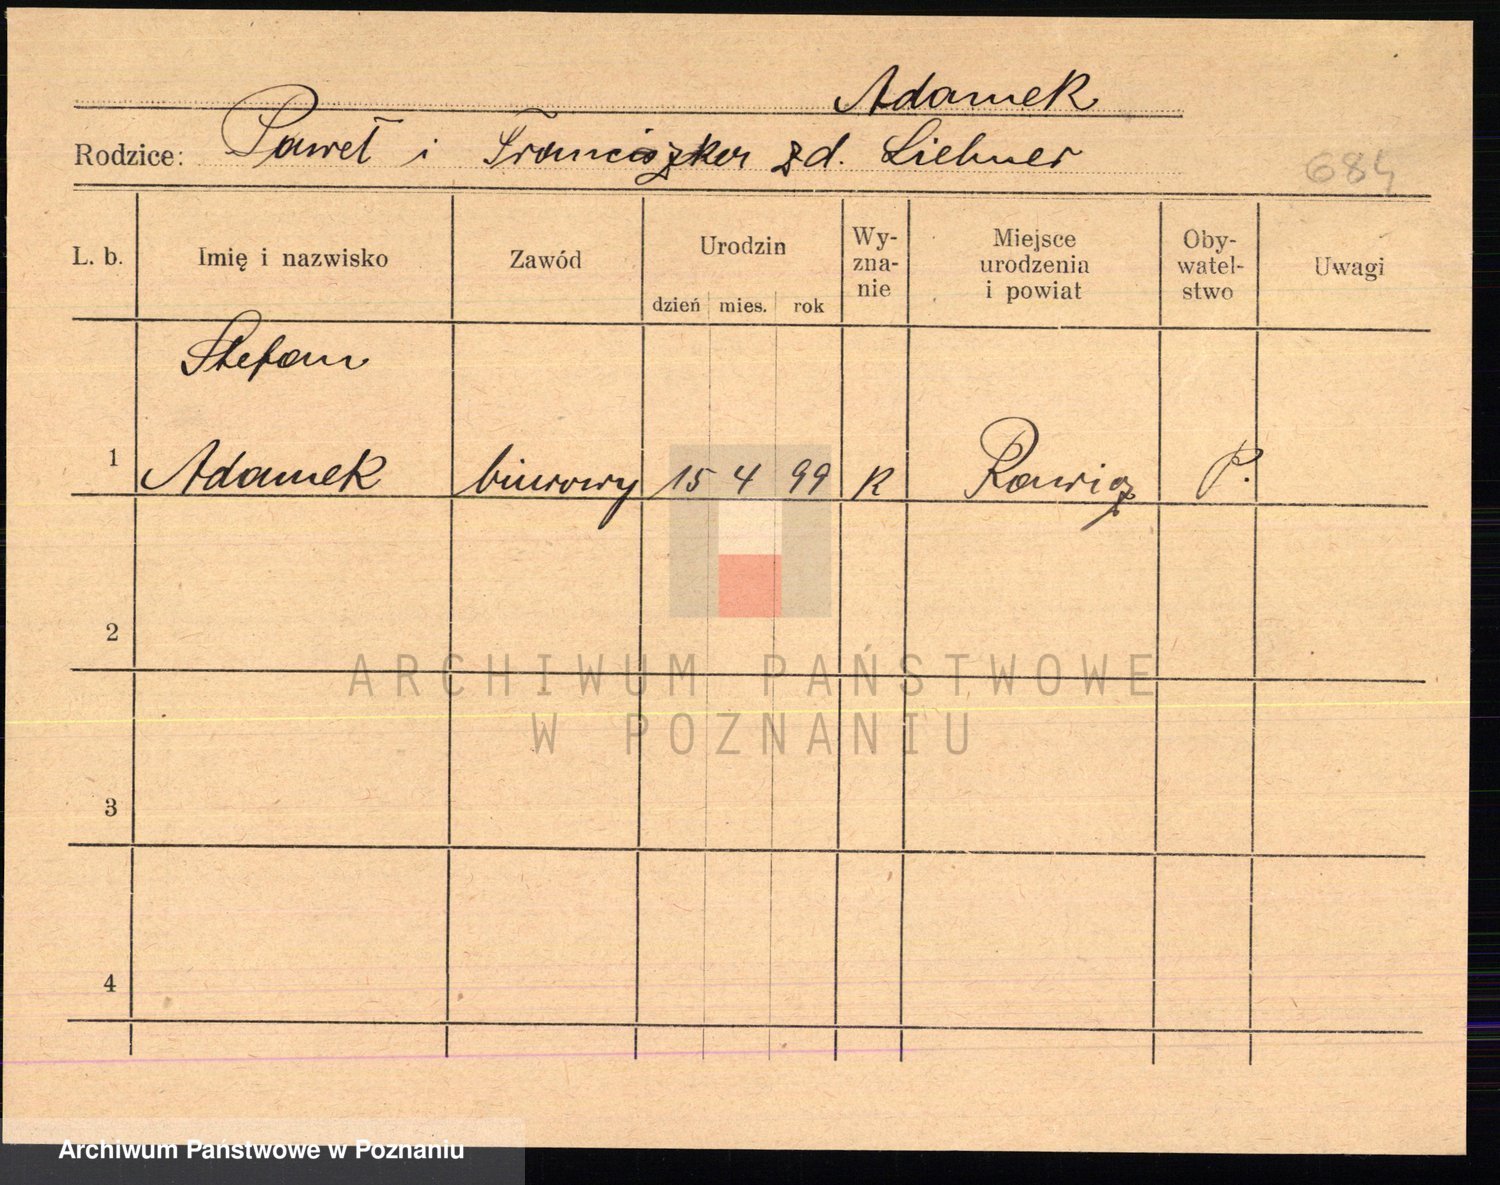 Adamek
Rodzice: Paweł i Franciszka zd. Liebner
684
L. b. Imię i nazwisko Zawód Urodzin dzień mies. rok Wy-znanie Miejsce urodzenia i powiat Oby-watel-stwo Uwagi
Stefan
1 Adamek biurowy 15 4 99 R Rawicz P.
2
ARCHIWUM PAŃSTWOWE
W POZNANIU
3
4
Archiwum Państwowe w Poznaniu